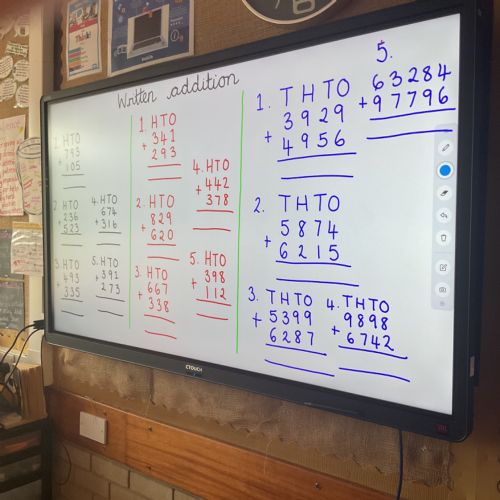 Written addition
1. HTO
+ 793
105
2. HTO
+ 236
523
3. HTO
+ 493
335
4. HTO
674
+ 316
5. HTO
+ 391
273
1. HTO
+ 341
293
2. HTO
+ 829
620
3. HTO
+ 667
338
4. HTO
+ 442
378
5. HTO
+ 398
112
1. THTO
3929
+ 4956
2. THTO
5874
+ 6215
3. THTO
+ 5399
6287
4. THTO
9898
+ 6742
5.
63284
+ 97796
CTOUCH
Think!